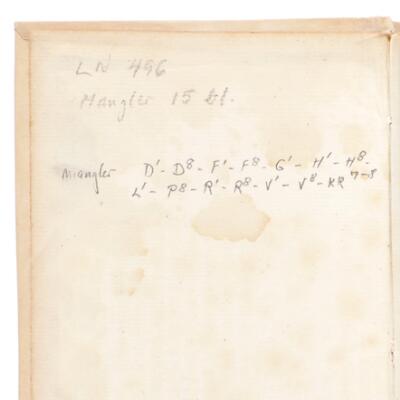 LN 496
Mangler 15 bl.
Mangler D' - D8 - F' - F8 - G' - H' - H8 -
L' - P8 - R' - R8 - V' - V8 - KR 7-8